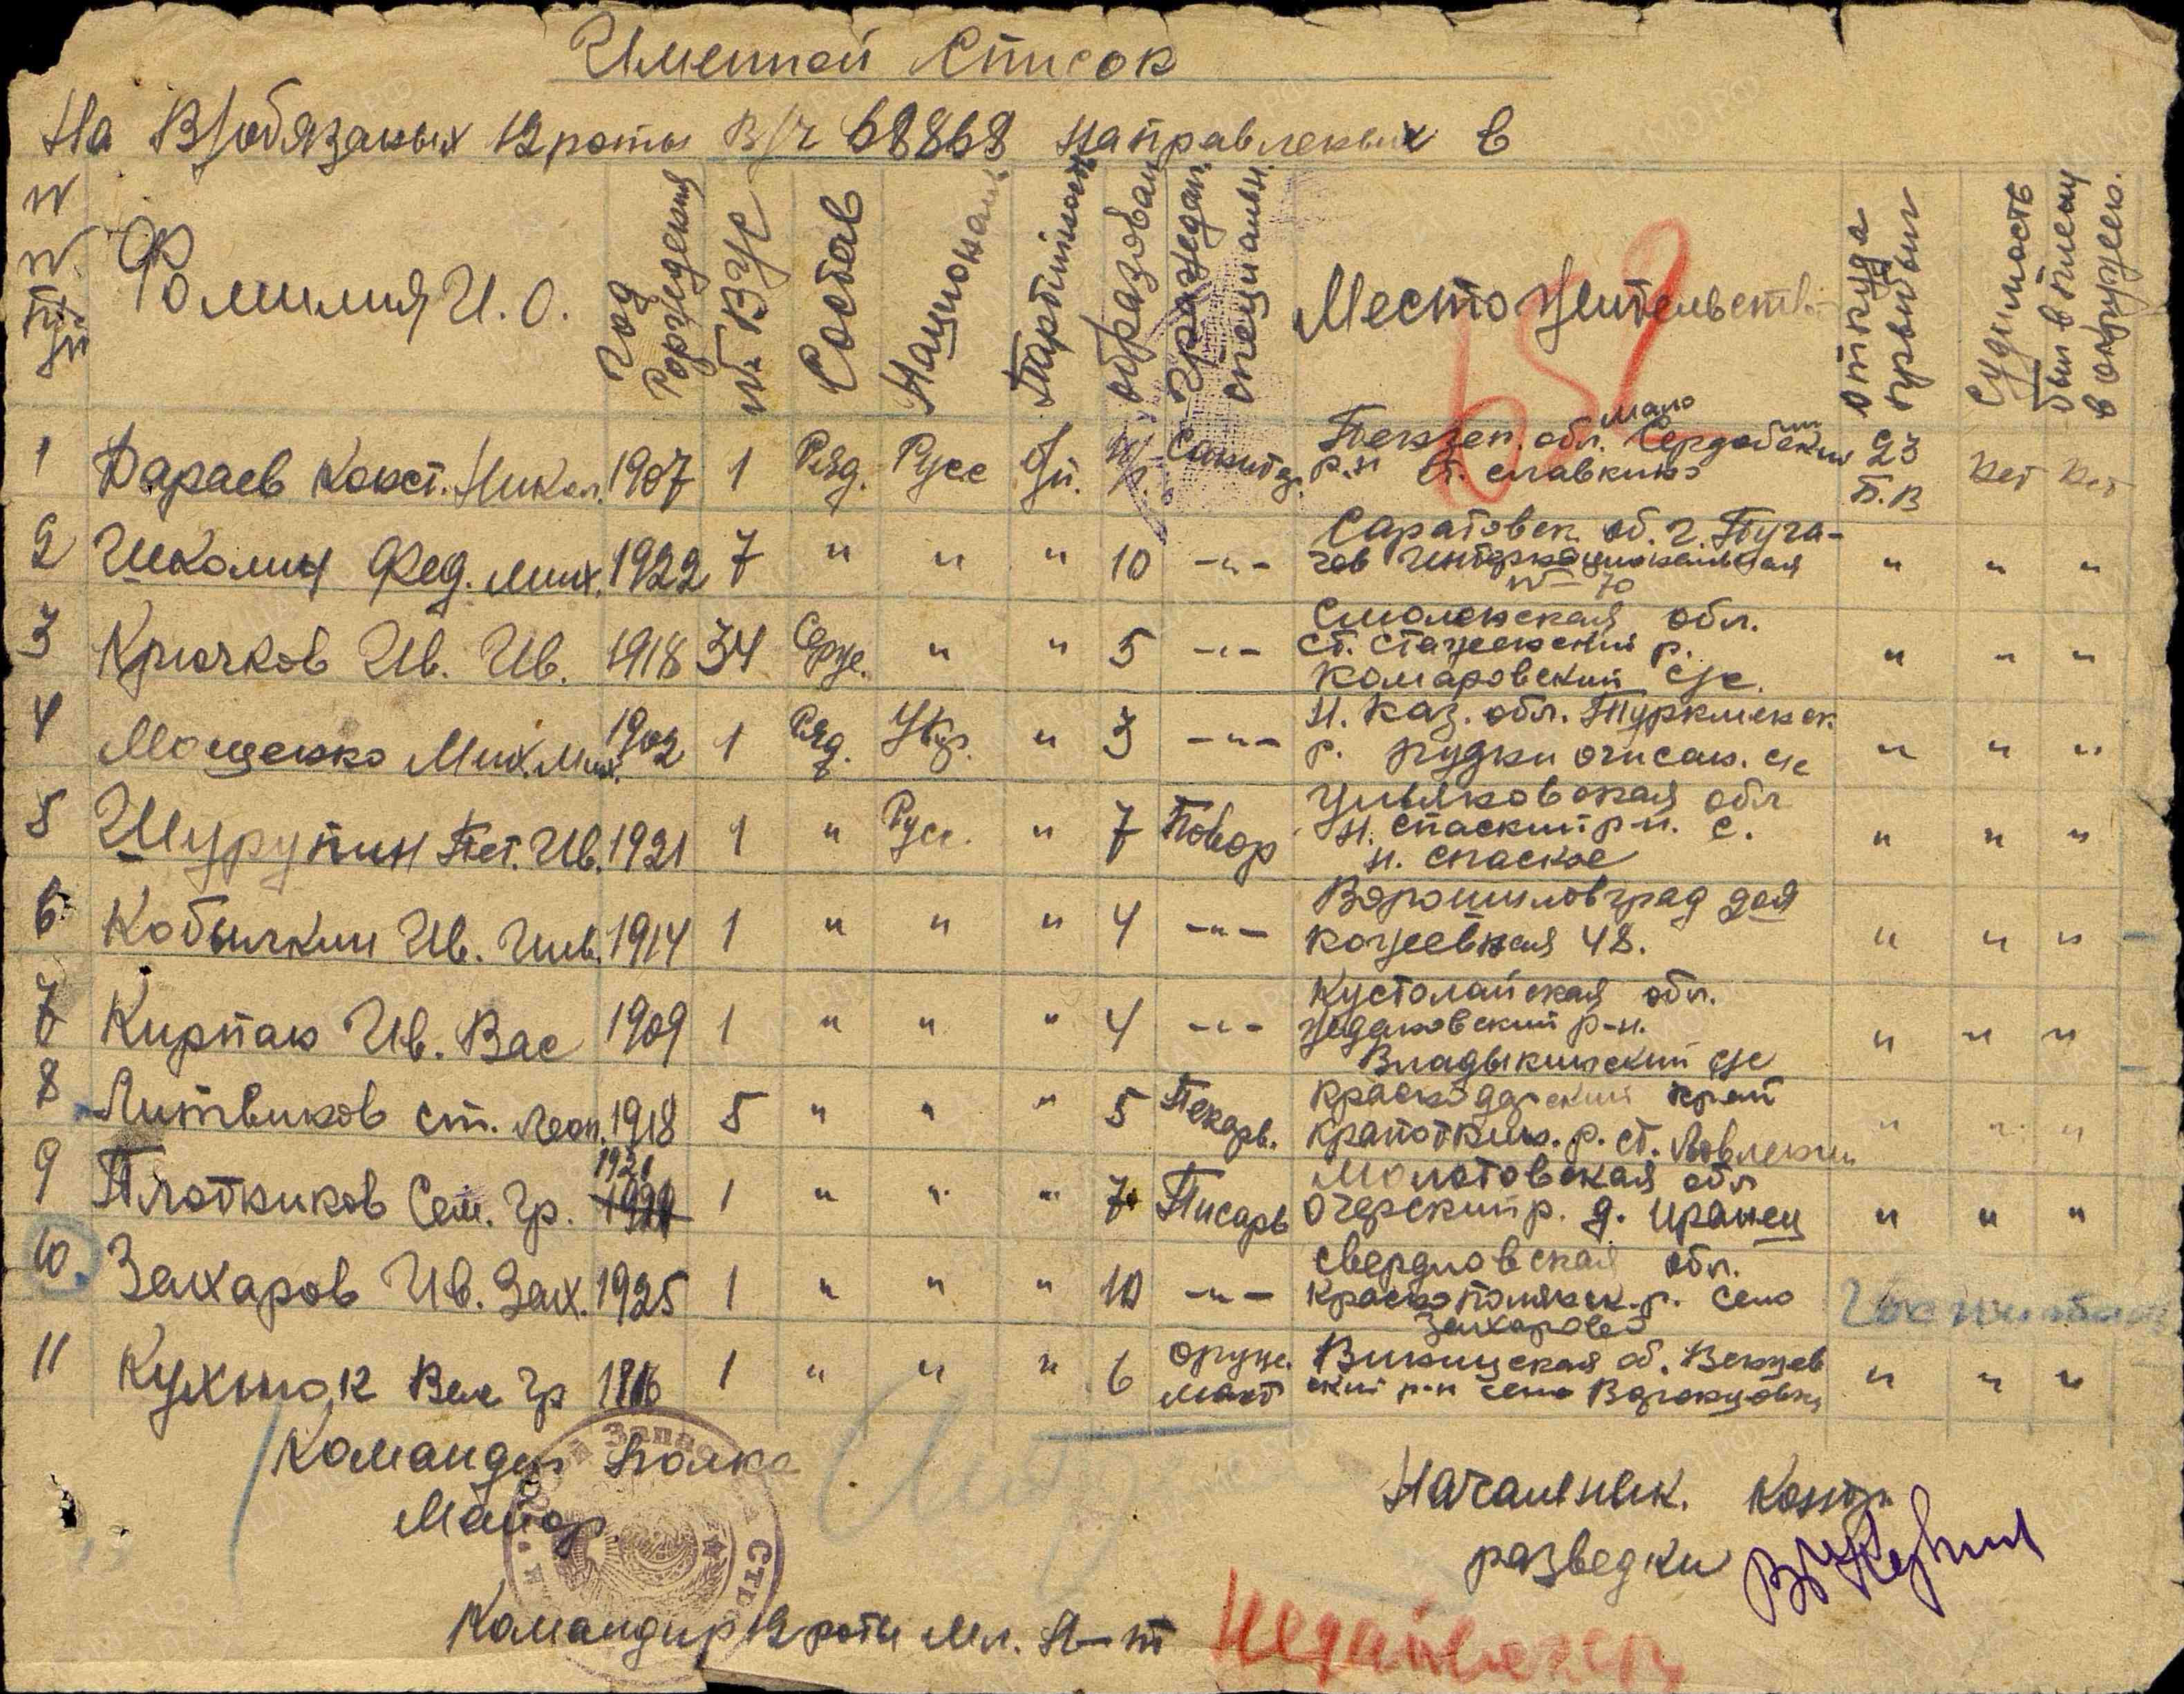 Именной Список
На В/обязаных 12 роты В/Ч 68868 направленых в
N N п/п
Фамилия И. О.
Год Рождения
№ ВУС
Состав
Национал
Партийность
образован
Гражедан специальн.
Место жительств
откуда прибыл
Судимость
был в плену
в окружен.
1 Дараев Конст. Никол. 1907 1 Ряд. Русс Б/п. Н/ср. Пензен. обл. Мало Сердобский р-н ст. славкино 23 П.В нет нет
2 Школин Фед. Мих. 1922 7 " " " 10 -"- Саратовск об. г. Пугачев Интернациональная № 70 " " "
3 Крючков Ив. Ив. 1918 34 Серж. " " 5 -"- Смоленская обл. р. Комаровский с/с. " " "
4 Мощенко Мих. Мих. 1902 1 Ряд. Укр. " 3 -"- Н. Каз. обл. Туркменск р. с/с " " "
5 Шурупин Пет. Ив. 1921 1 " Русс. " 7 Повор Ульяновская обл Н. спаский р-н. с. Н. спаское " " "
6 Кобычкин Ив. 1914 1 " " " 4 -"- Ворошиловград 48. " " "
7 Кирпан Ив. Вас 1909 1 " " " 4 -"- Кустонайская обл. р-н. Владыкинский с/с " " "
8 Литвинов Ст. Леон. 1918 5 " " " 5 Пекарь. Краснодарский край Крапоткин. р. ст. " " "
9 Плотников Сем. Гр. 1921 1 " " " 7 Писарь Молотовская обл Очерский р. д. " " "
10. Захаров Ив. Зах. 1925 1 " " " 10 -"- Свердловская обл. р. село Захарово Госпиталь
11 Кухнюк Вас Гр 1 " " " 6 оруж. маст Виницская об. р-н село " " "
Командир Полка
Майор
Начальник. Контр
разведки
Командир 12 роты Мл. Л-т